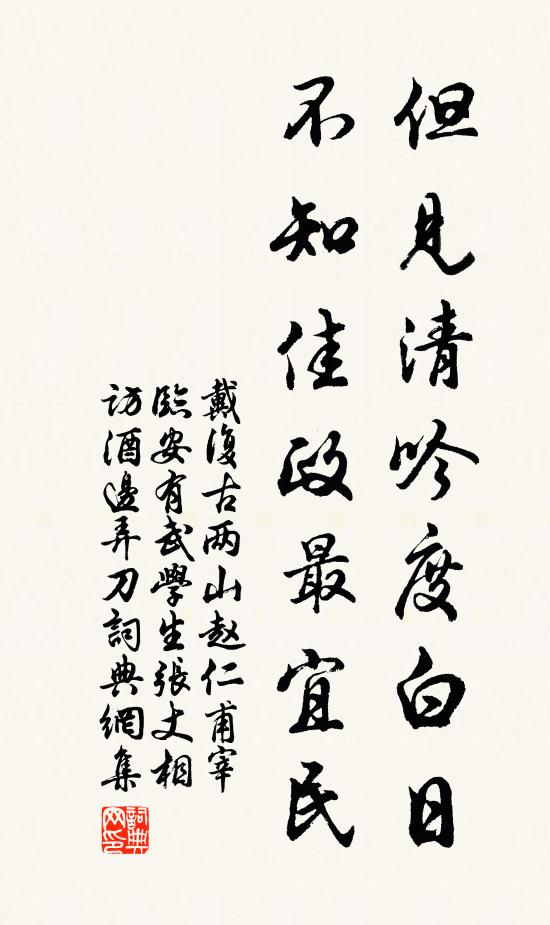 但見清吟度白日
不知佳政最宜民
戴復古两山赵仁甫宰
臨安有武學生張丈相
访酒邊弄刀詞典網集
詞典网印